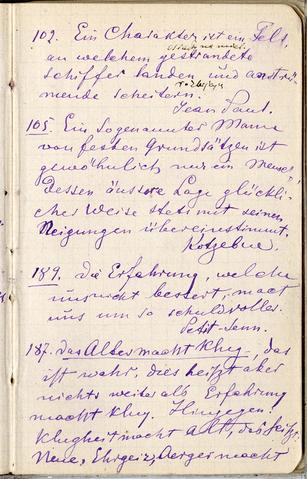 102. Ein Charakter ist ein Fels,
an welchem gestrandete
Schiffer landen und anstür-
mende scheitern.
Jean Paul.
105. Ein sogenannter Mann
von festen Grundsätzen ist
gewöhnlich nur ein Mensch
dessen äussere Lage glückli-
cher Weise stets mit seinen
Neigungen übereinstimmt.
Kotzebue.
189. Die Erfahrung, welche
uns nicht bessert, macht
uns um so schuldvoller.
Petit-Senn.
187. Das Alter macht klug, das
ist wahr, dies heißt aber
nichts weiter als Erfahrung
macht klug. Hingegen
Klugheit macht alt, das heißt:
Reue, Ehrgeiz, Aerger macht